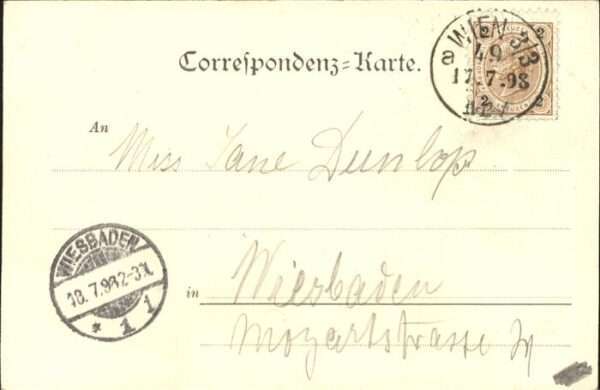 WIEN 3/3
a
49
17.7.98
2 2
2 2
Correspondenz=Karte.
An
Miss Jane Dunlop
WIESBADEN
18.7.98 2-3N.
* 1 1
in
Wiesbaden
Mozartstrasse